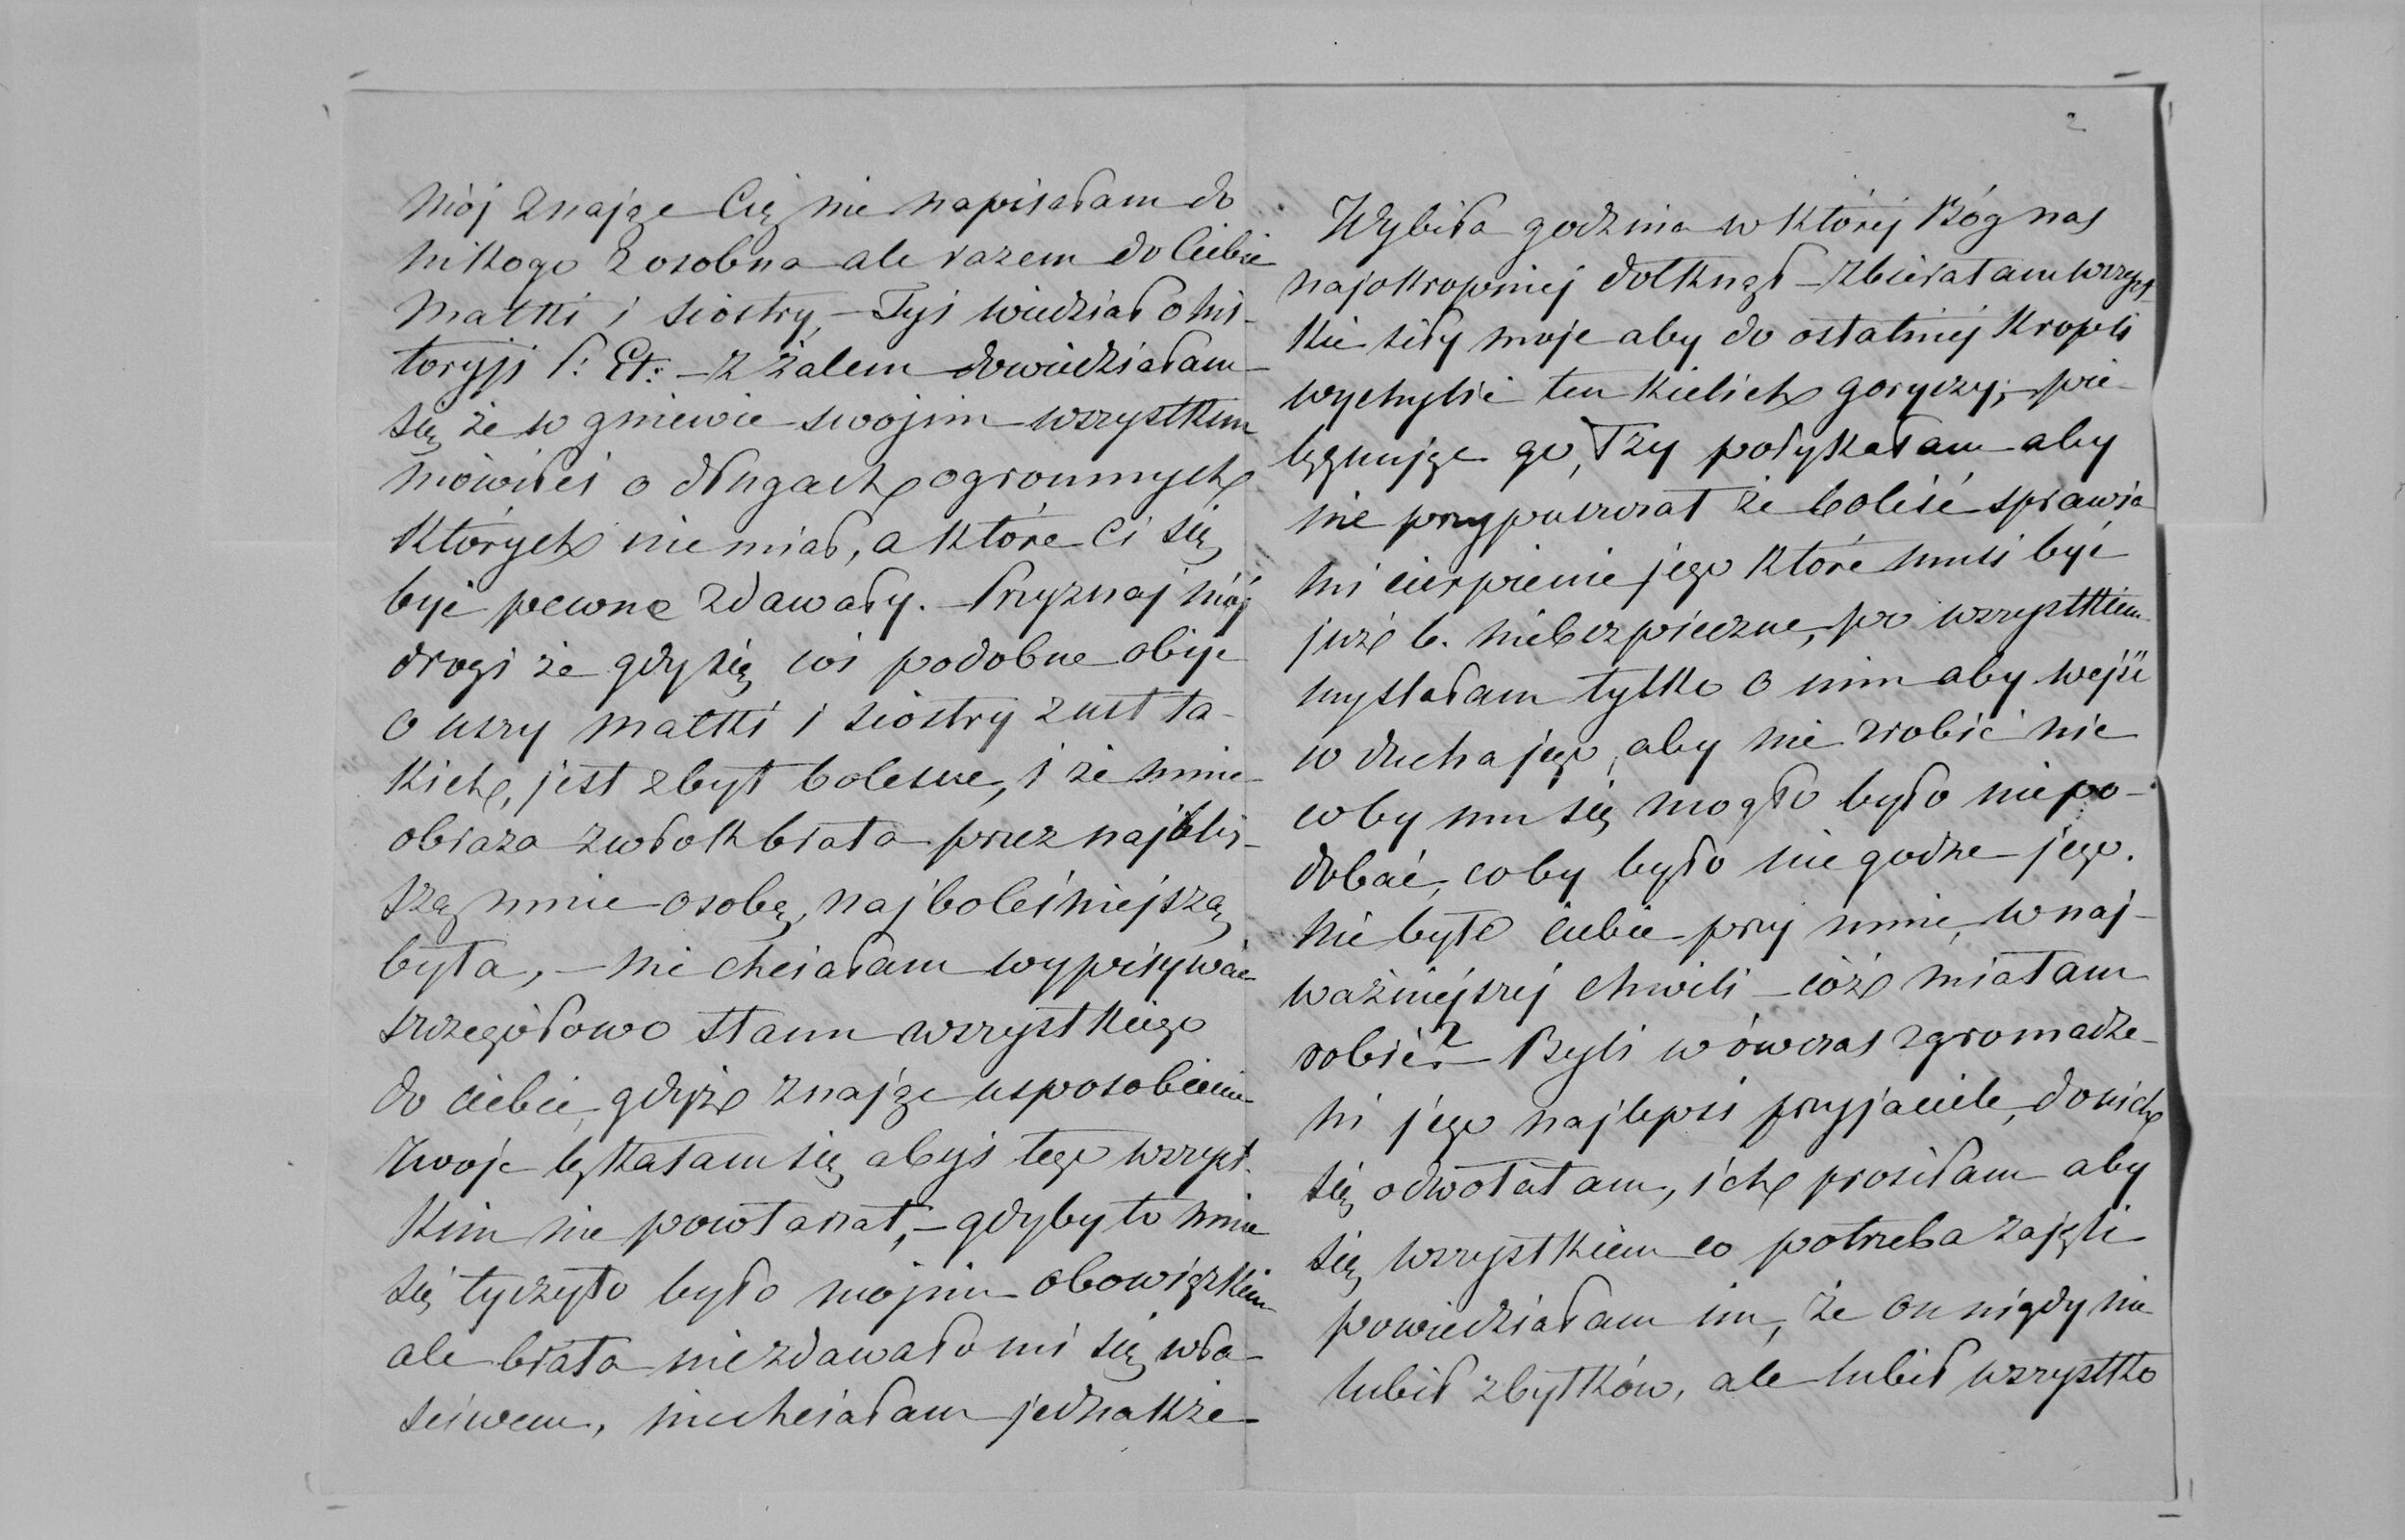 mój znając Cię nie napisałam do
nikogo z osobna ale razem do Ciebie
Matki i siostry, – Tyś wiedział o his-
toryji P: Et: – z żalem dowiedziałam
się że w gniewie swojim wszystkim
mówiłeś o długach ogromnych
których nie miał, a które Ci się
być pewne zdawały. – Przyznaj mój
drogi że gdy się coś podobne obije
o uszy Matki i siostry z ust ta-
kich, jest zbyt bolesne, i że mnie
obraza zwłok brata przez najbliż-
szą mnie osobę, najboleśniejszą
była, – nie chciałam wypisywać
szczegółowo stanu wszystkiego
do ciebie, gdyż znając usposobienie
twoje lękałam się abyś tego wszyst-
kim nie powtarzał, – gdyby to mnie
się tyczyło było mojim obowiązkiem
ale brata nie zdawało mi się wła-
ściwem, niechciałam jednakże
2
Wybiła godzina w której Bóg nas
najokropniej dotknął – zbierałam wszyst-
kie siły moje aby do ostatniej kropli
wychylić ten kielich goryczy; – pie-
lęgnując go, łzy połykałam aby
nie przypuszczał że boleść sprawia
mi cierpienie jego które musi być
już b. niebezpieczne, po wszystkiem
myślałam tylko o nim aby wejść
w ducha jego, aby nie zrobić nic
coby mu się mogło było niepo-
dobać, coby było nie godne jego.
Nie było ciebie przy mnie, w naj-
ważniejszej chwili – cóż miałam
robić? – Byli wówczas zgromadze-
ni jego najlepsi przyjaciele, do nich
się odwołałam, ich prosiłam aby
się wszystkiem co potrzeba zajęli
powiedziałam im, że on nigdy nie
lubił zbytków, ale lubił wszystko